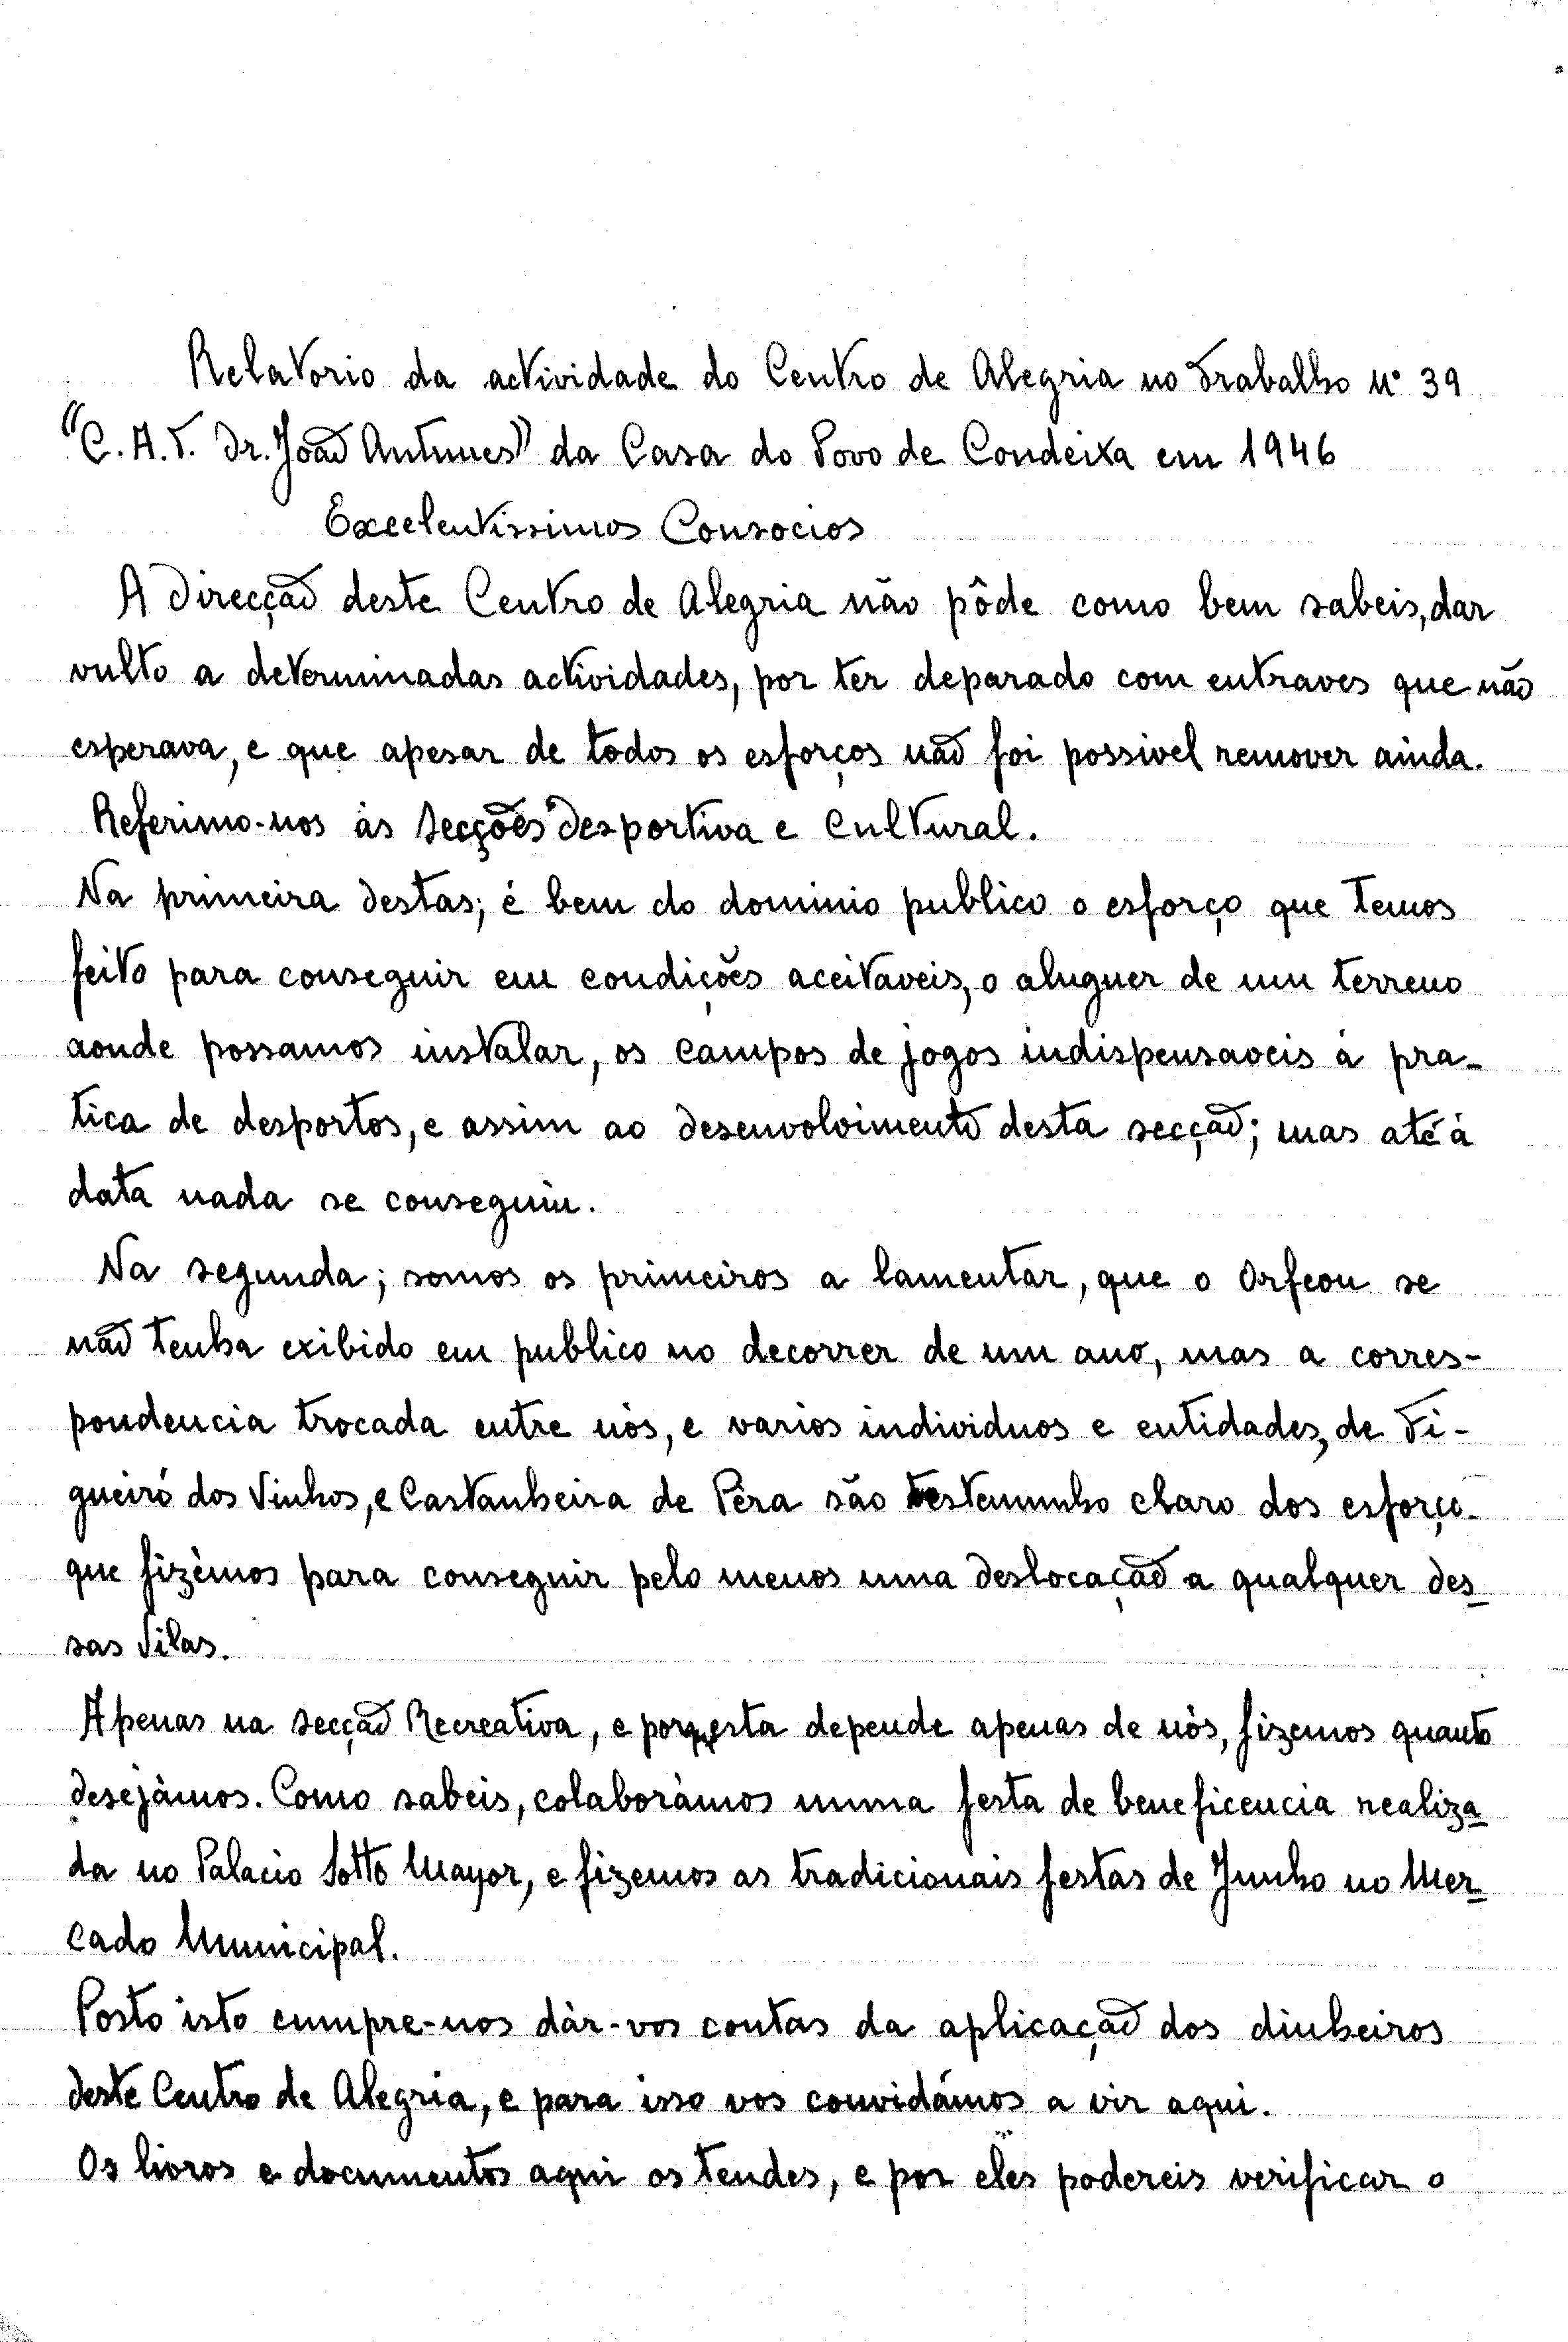 Relatorio da actividade do Centro de Alegria no Trabalho Nº 39
"C.A.T. Dr. João Antunes" da Casa do Povo de Condeixa em 1946
Excelentissimos Consocios
A Direcção deste Centro de Alegria não pôde como bem sabeis, dar
vulto a determinadas actividades, por ter deparado com entraves que não
esperava, e que apesar de todos os esforços não foi possivel remover ainda.
Referimo-nos ás Secções Desportiva e Cultural.
Na primeira destas; é bem do dominio publico o esforço que temos
feito para conseguir em condições aceitaveis, o aluguer de um terreno
aonde possamos instalar, os campos de jogos indispensaveis á pra-
tica de desportos, e assim ao desenvolvimento desta secção; mas até á
data nada se conseguiu.
Na segunda; somos os primeiros a lamentar, que o Orfeon se
não tenha exibido em publico no decorrer de um ano, mas a corres-
pondencia trocada entre nós, e varios individuos e entidades, de Fi-
gueiró dos Vinhos, e Castanheira de Pêra são testemunho claro dos esforço-
que fizémos para conseguir pelo menos uma deslocação a qualquer des-
sas Vilas.
Apenas na secção Recreativa, e porq. esta depende apenas de nós, fizemos quanto
desejámos. Como sabeis, colaborámos numa festa de beneficencia realiza-
da no Palacio Sotto Mayor, e fizemos as tradicionais festas de Junho no Mer-
cado Municipal.
Posto isto cumpre-nos dár-vos contas da aplicação dos dinheiros
deste Centro de Alegria, e para isso vos convidámos a vir aqui.
Os livros e documentos aqui os tendes, e por eles podereis verificar o